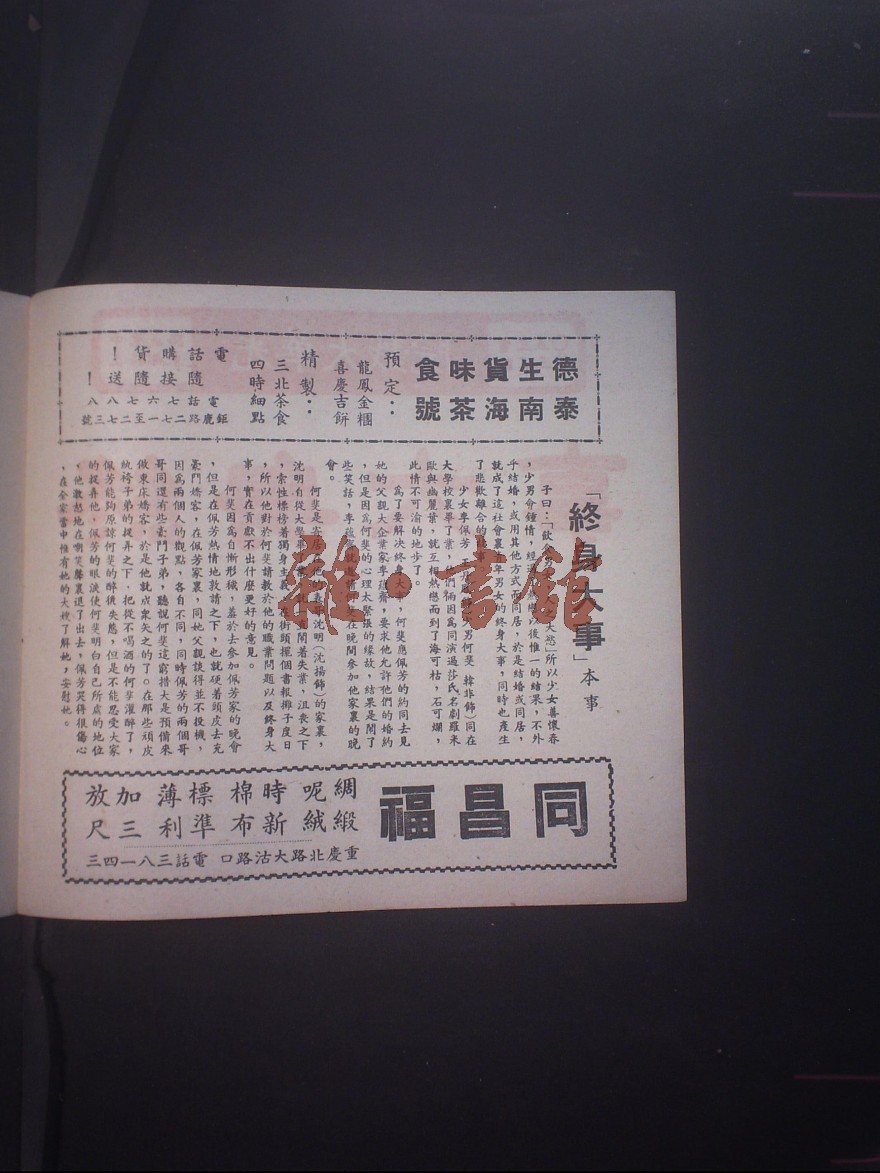 德生貨味食
泰南海茶號
預定：
龍鳳金糰
喜慶吉餅
精製：
三北茶食
四時細點
電話購貨！
隨接隨送！
電話
鉅鹿路
「終身大事」本事
子曰：「飲
大慾」所以少女善懷春
，少男會鍾情，經
戀以後惟一的結果，不外
乎結婚，或用其他方式而同居，於是結婚或同居，
就成了這社會裏青年男女的終身大事，同時也產生
了悲歡離合的
事
少女李佩芳
男何斐
韓非飾）同在
大學校裏畢了業，他們倆因爲同演過莎氏名劇羅米
歐與幽麗葉，就互相熱戀而到了海可枯，石可爛，
此情不可渝的地步了。
爲了要解决終身大事，何斐應佩芳的約同去見
她的父親大企業家李蘊齋，要求他允許他們的婚約
，但是因爲何斐的心理太緊張的緣故，結果是鬧了
些笑話，李蘊
在晚間參加他家裏的晚
會。
何斐是寄居
沈明（沈揚飾）的家裏，
沈明自從大學畢
直鬧著失業，沮喪之下
，索性標榜著獨身主義，在街頭擺個書報攤子度日
，所以他對於何斐請教於他的職業問題以及終身大
事，實在貢獻不出什麼更好的意見。
何斐因爲自慚形穢，羞於去參加佩芳家的晚會
，但是在佩芳熱情地敦請之下，也就硬着頭皮去充
豪門嬌客，在佩芳家裏，同她父親談得並不投機，
因爲兩個人的觀點，各自不同，同時佩芳的兩個哥
哥同還有些豪門子弟，聽說何斐這窮措大是預備來
做東床嬌客，於是他就成衆矢之的了。在那些頑皮
紈袴子弟的捉弄之下，把從不喝酒的何斐灌醉了，
佩芳能夠原諒何斐的醉後失態，但是不能忍受大家
的捉弄他，佩芳的眼淚使何斐明白自己所處的地位
，他激怒地在嘲笑聲裏退了出去，佩芳哭得很傷心
，在全家當中惟有她的大嫂了解她，安慰她。
同昌福
綢緞
呢絨
時新
棉布
標準
薄利
加三
放尺
重慶北路大沽路口 電話三八一四三
雜·書館